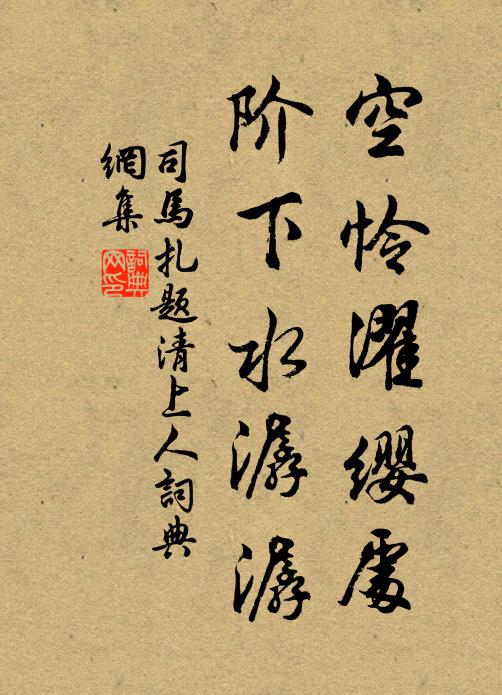 空怜濯缨处
阶下水潺潺
司馬扎题清上人詞典
網集
詞典
网印